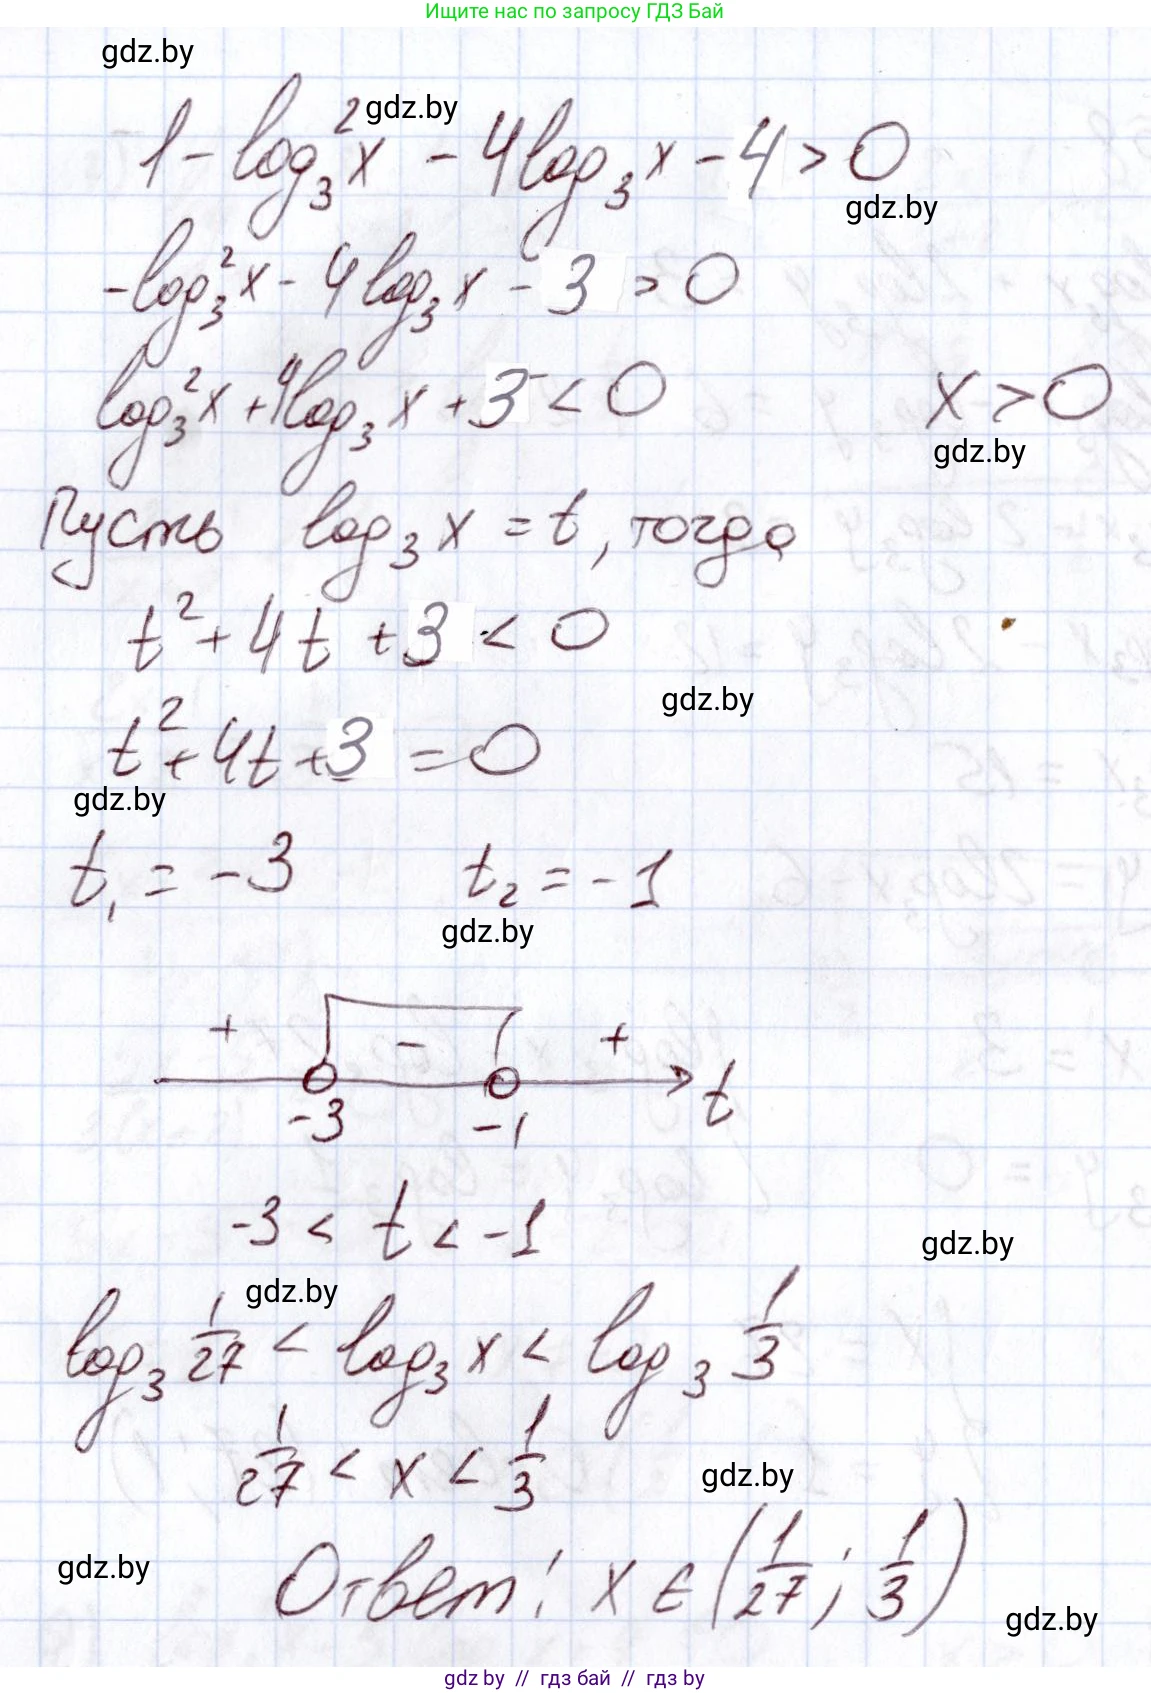 Ищите нас по запросу ГДЗ Бай
gdz.by
gdz.by
1 - log₃²x - 4log₃x - 4 > 0
gdz.by
-log₃²x - 4log₃x - 3 > 0
log₃²x + 4log₃x + 3 < 0 x > 0
gdz.by
Пусть log₃x = t, тогда
t² + 4t + 3 < 0
gdz.by
t² + 4t + 3 = 0
gdz.by
t₁ = -3 t₂ = -1
gdz.by
+ - +
-3 -1 t
-3 < t < -1
gdz.by
gdz.by
log₃ 1/27 < log₃x < log₃ 1/3
1/27 < x < 1/3
gdz.by
gdz.by
Ответ: x ∈ (1/27; 1/3)
gdz.by
gdz by // гдз бай // гдз by